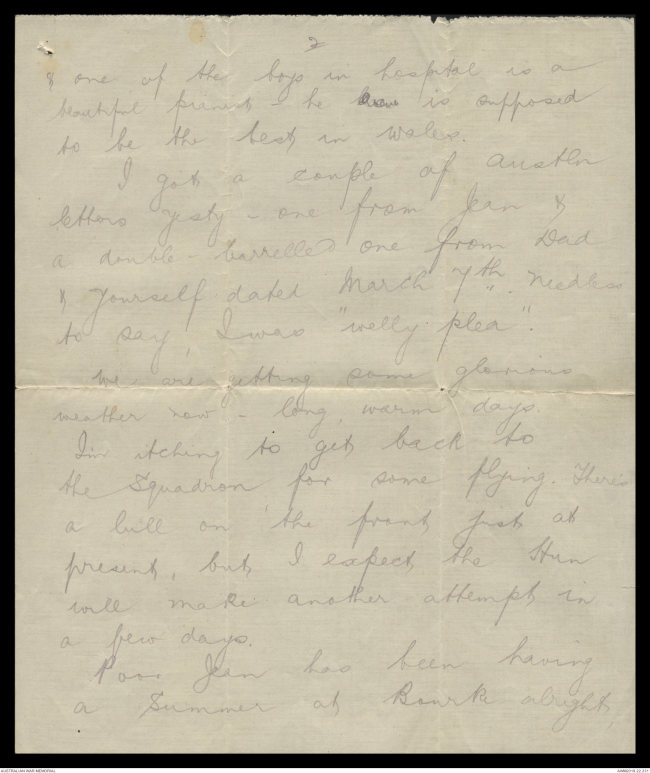 2
& one of the boys in hospital is a
beautiful pianist - he is supposed
to be the best in Wales.
I got a couple of Austln
letters yesty - one from Jean &
a double-barrelled one from Dad
& yourself dated March 7th. Needless
to say, I was "welly plea".
We are getting some glorious
weather now - long, warm days.
I'm itching to get back to
the Squadron for some flying. There's
a lull on the front just at
present, but I expect the Hun
will make another attempt in
a few days.
Poor Jean has been having
a Summer at Bourke alright,
AUSTRALIAN WAR MEMORIAL